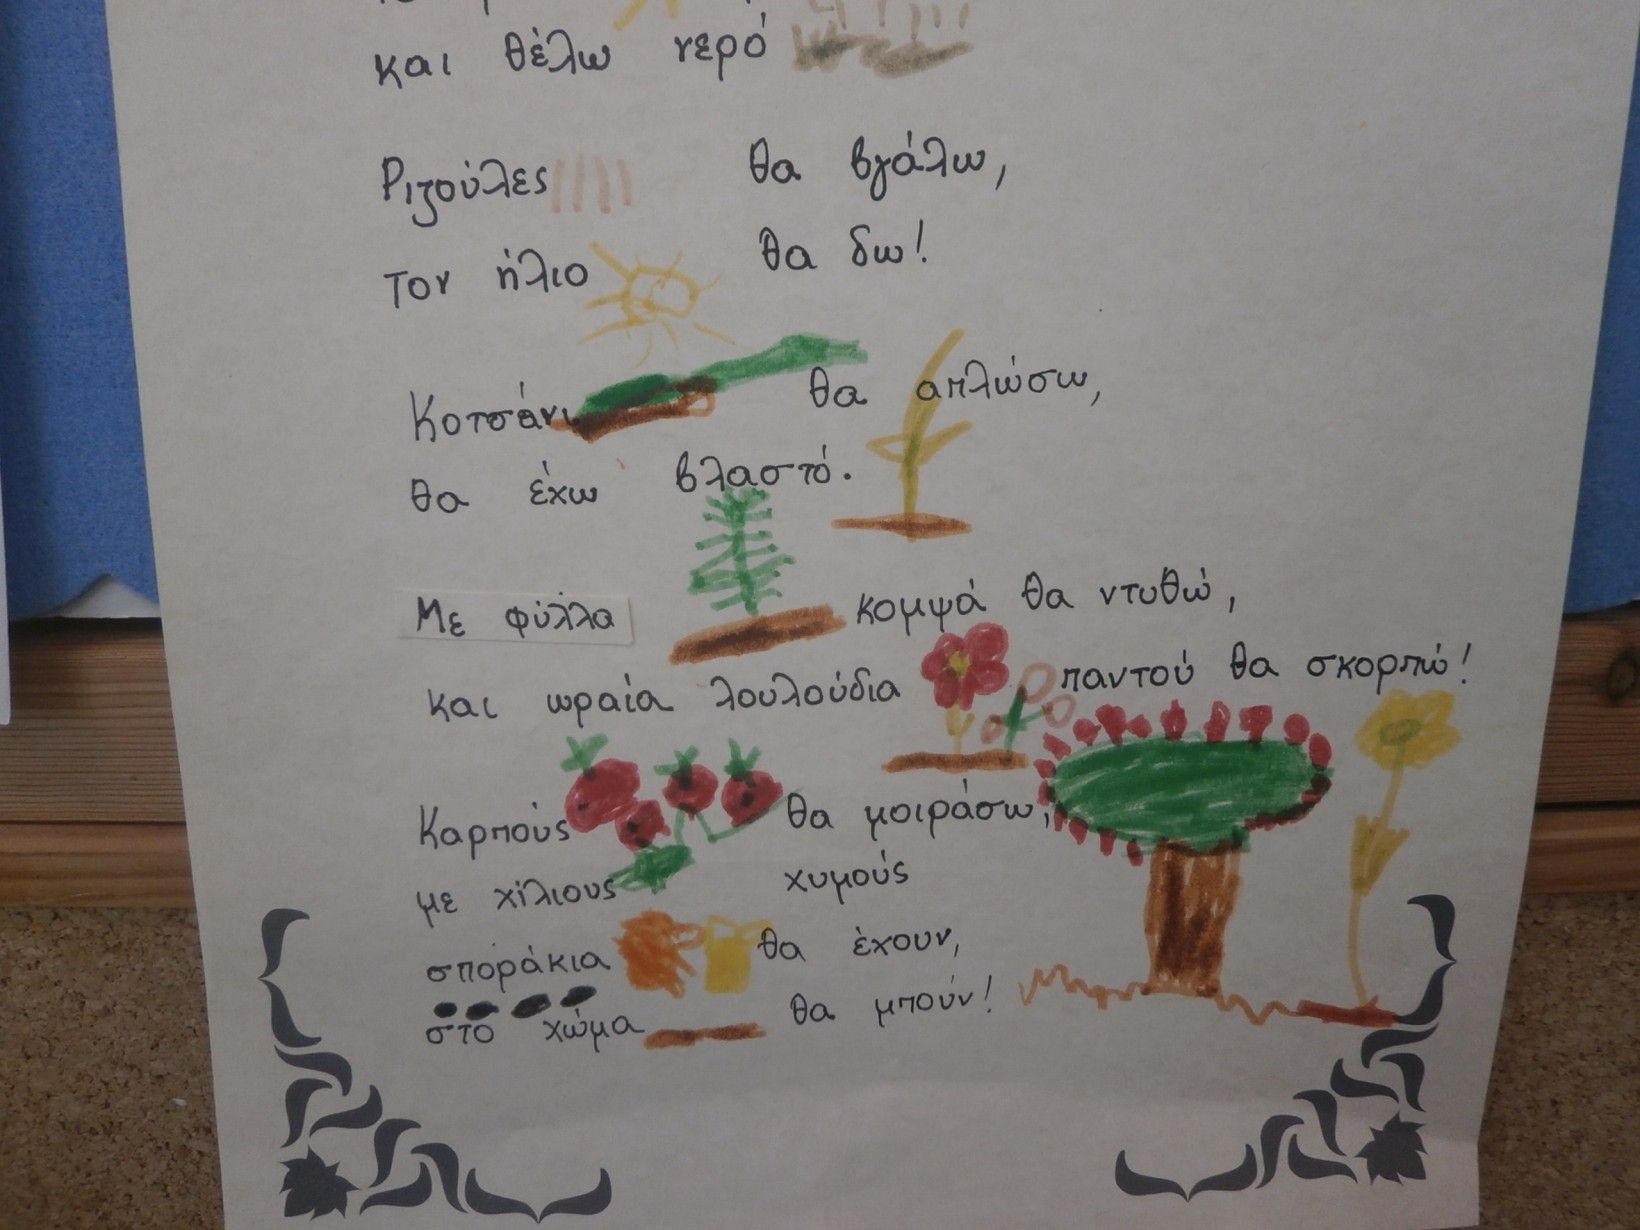 και θέλω νερό
Ριζούλες θα βγάλω,
τον ήλιο θα δω!
Κοτσάνι θα απλώσω,
θα έχω βλαστό.
Με φύλλα κομψά θα ντυθώ,
και ωραία λουλούδια παντού θα σκορπώ!
Καρπούς θα μοιράσω,
με χίλιους χυμούς
σποράκια θα έχουν,
στο χώμα θα μπούν!